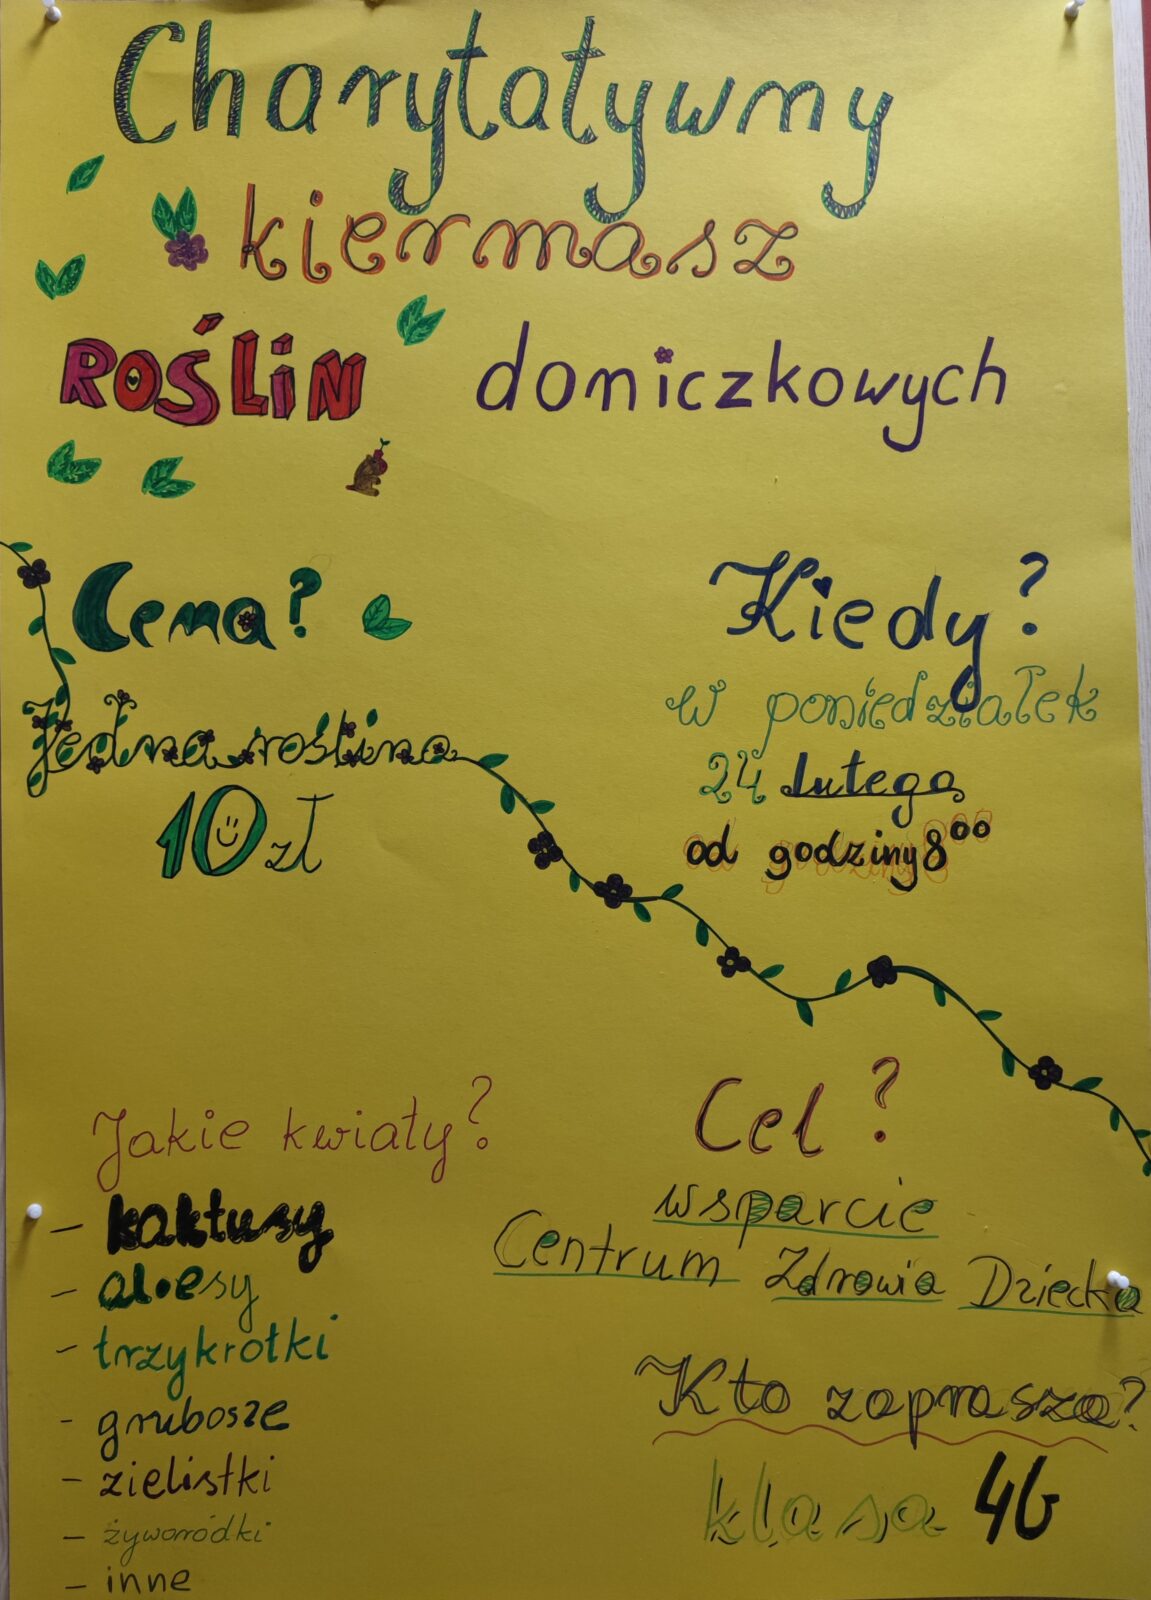 Charytatywny
kiermasz
ROŚLiN doniczkowych
Cena?
Jedna roślina
10 zł
Kiedy?
w poniedziałek
24 lutego
od godziny 8⁰⁰
Jakie kwiaty?
- kaktusy
- aloesy
- trzykrotki
- grubosze
- zielistki
- żyworódki
- inne
Cel?
wsparcie
Centrum Zdrowia Dziecka
Kto zaprasza?
klasa 4b